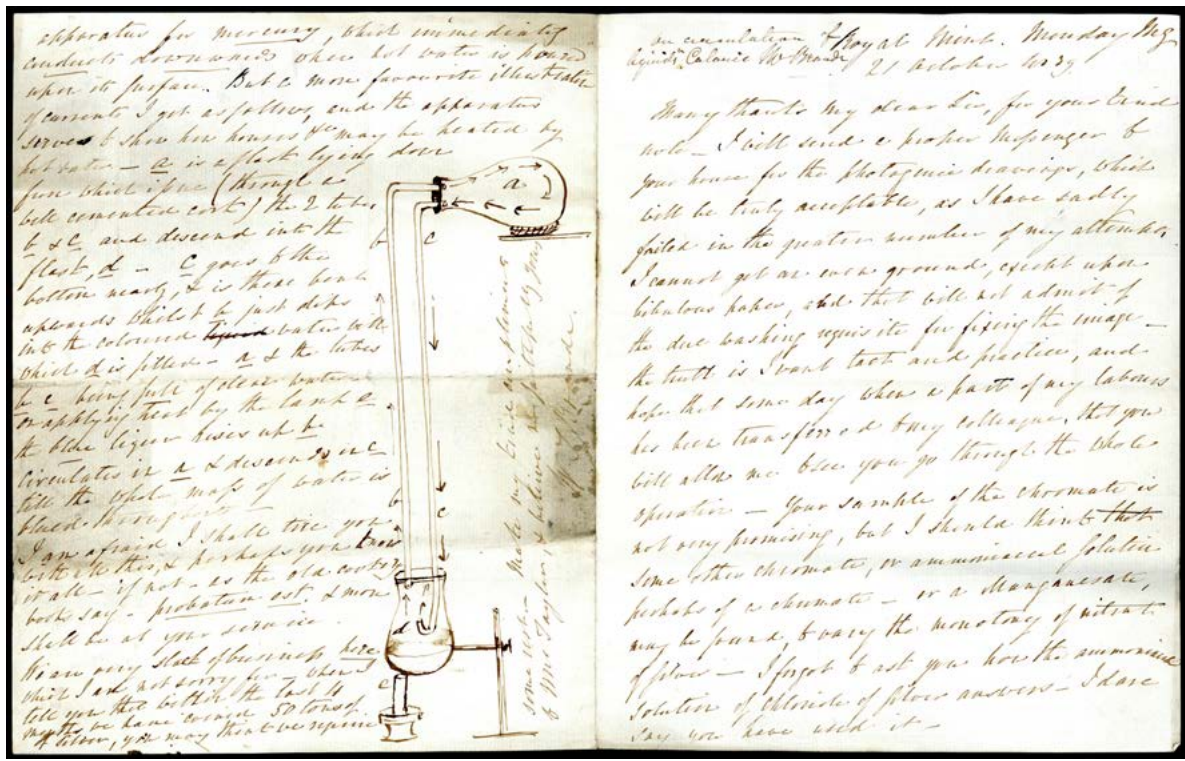 apparatus for mercury, which immediately
conducts downwards when hot water is poured
upon its surface. But a more favourite illustration
of currents I get as follows, and the apparatus
serves to show how houses &c may be heated by
hot water — a is a flask lying down
from which issue (through a
well cemented cork) the 2 tubes
b & c and descend into the
flask, d — c goes to the
bottom nearly, & is there bent
upwards whilst b just dips
into the coloured liquid water with
which d is filled — a & the tubes
b c being full of clear water
on applying heat by the lamp e
the blue liquor rises up b
circulates in a & descends in c
till the whole mass of water is
blued throughout —
I am afraid I shall tire you
with all this, & perhaps you know
it all — if not — as the old cookery
books say — probatum est & more
shall be at your service.
We are very slack of business here
which I am not sorry for — when I
tell you that within the last
months we have coined 50 tons of
silver, you may think we require
some rest — Make my kind compliments
to Mrs Taylor & believe me faithfully yours
W. T. Brande.
a
b
c
b
c
d
e
on circulation of
liquids, Caloric Mr Brande
Royal Mint. Monday Mg
21 October 1839
Many thanks my dear Sir, for your kind
note — I will send a proper messenger to
your house for the photogenic drawings, which
will be truly acceptable, as I have sadly
failed in the greater number of my attempts.
I cannot get an even ground, except upon
bibulous paper, and that will not admit of
the due washing requisite for fixing the image —
the truth is I want tact and practice, and
hope that some day when a part of my labours
has been transferred to my colleague, that you
will allow me to see you go through the whole
operation — Your sample of the chromate is
not very promising, but I should think that
some other chromate, or ammoniacal solution
perhaps of a chromate — or a Manganesate,
may be found, to vary the monotony of nitrate
of silver — I forgot to ask you how the ammoniacal
solution of chloride of silver answers — I dare
say you have used it —